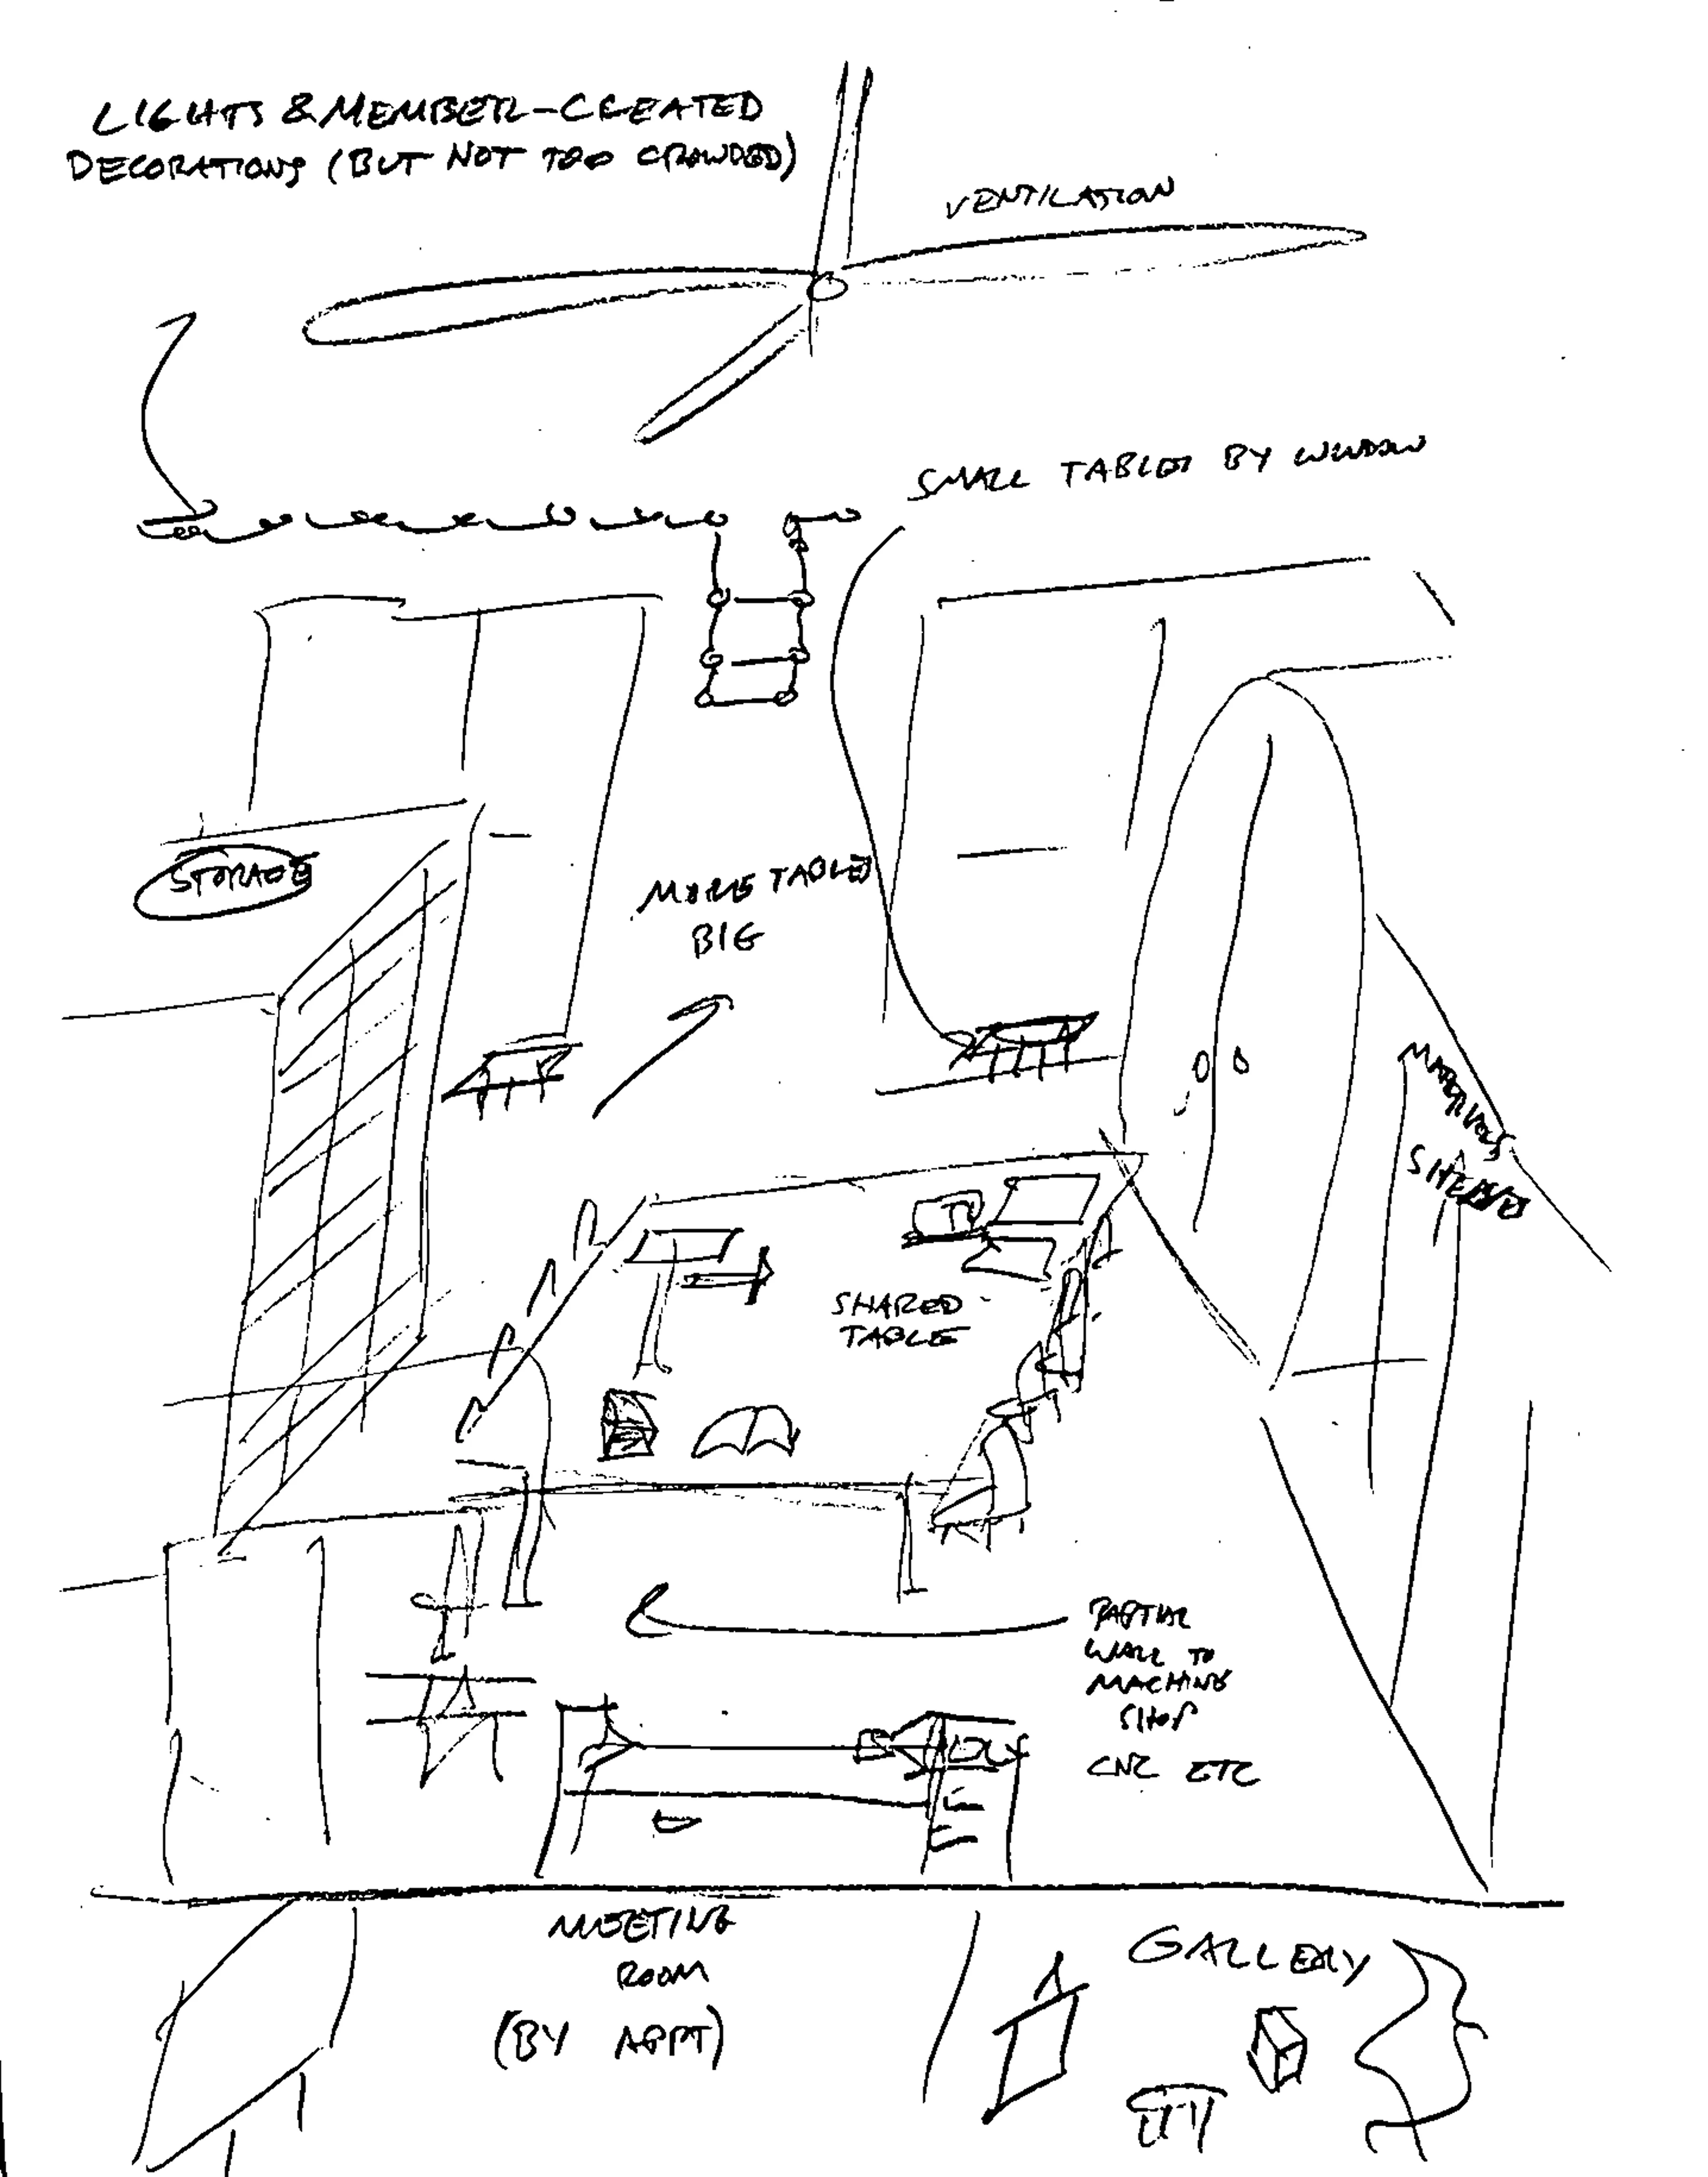 LIGHTS & MEMBER-CREATED
DECORATIONS (BUT NOT TOO CROWDED)
VENTILATION
SMALL TABLES BY WINDOW
STORAGE
MORE TABLES
BIG
MATERIALS
SHARED
TABLE
PARTIAL
WALL TO
MACHINE
SHOP
CNC ETC
MEETING
ROOM
(BY APPT)
GALLERY